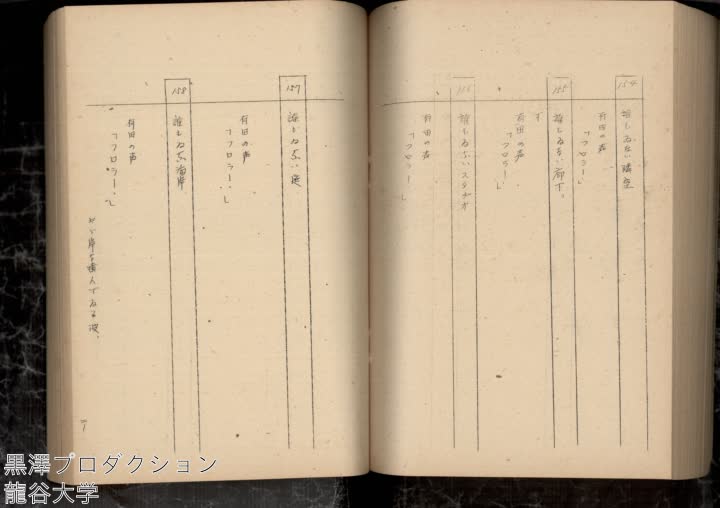 154
誰もゐない隣室
有田の声
「フロラー」
155
誰もゐない廊下。
有田の声
「フロラー！」
156
誰もゐないスタヂオ
有田の声
「フロラー！」
157
誰もゐない庭、
有田の声
「フロラー！」
158
誰もゐない海岸、
有田の声
「フロラー！」
岸を噛んでゐる波、
黒澤プロダクション
龍谷大学